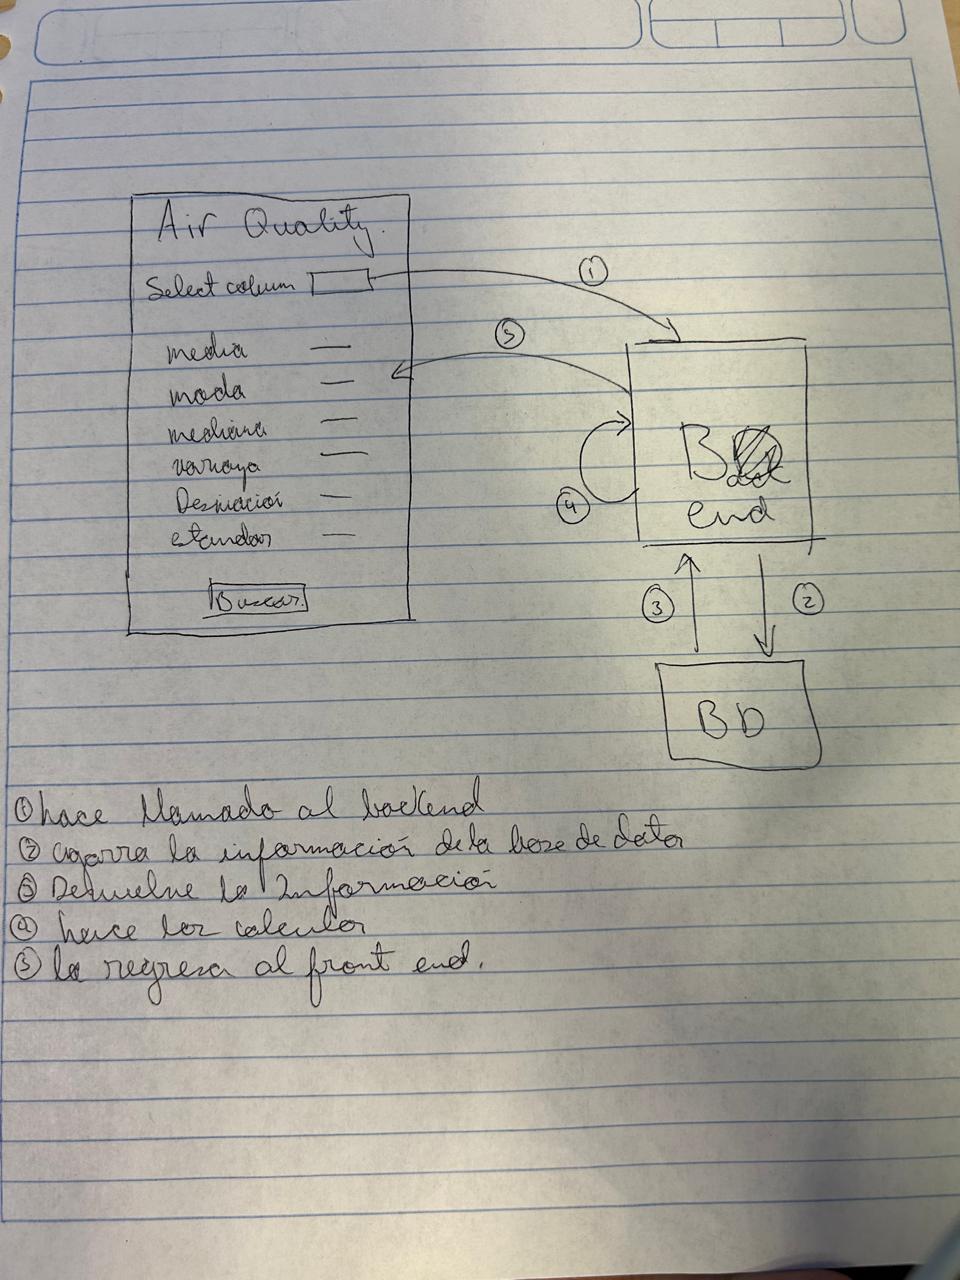 Air Quality.
Select column
media
moda
mediana
Desviación
estandar
Buscar
①
⑤
④
Back
end
③
②
BD
① hace llamado al backend
② agarra la información de la base de datos
③ Devuelve la Información
④ hace los calculos
⑤ la regresa al front end.